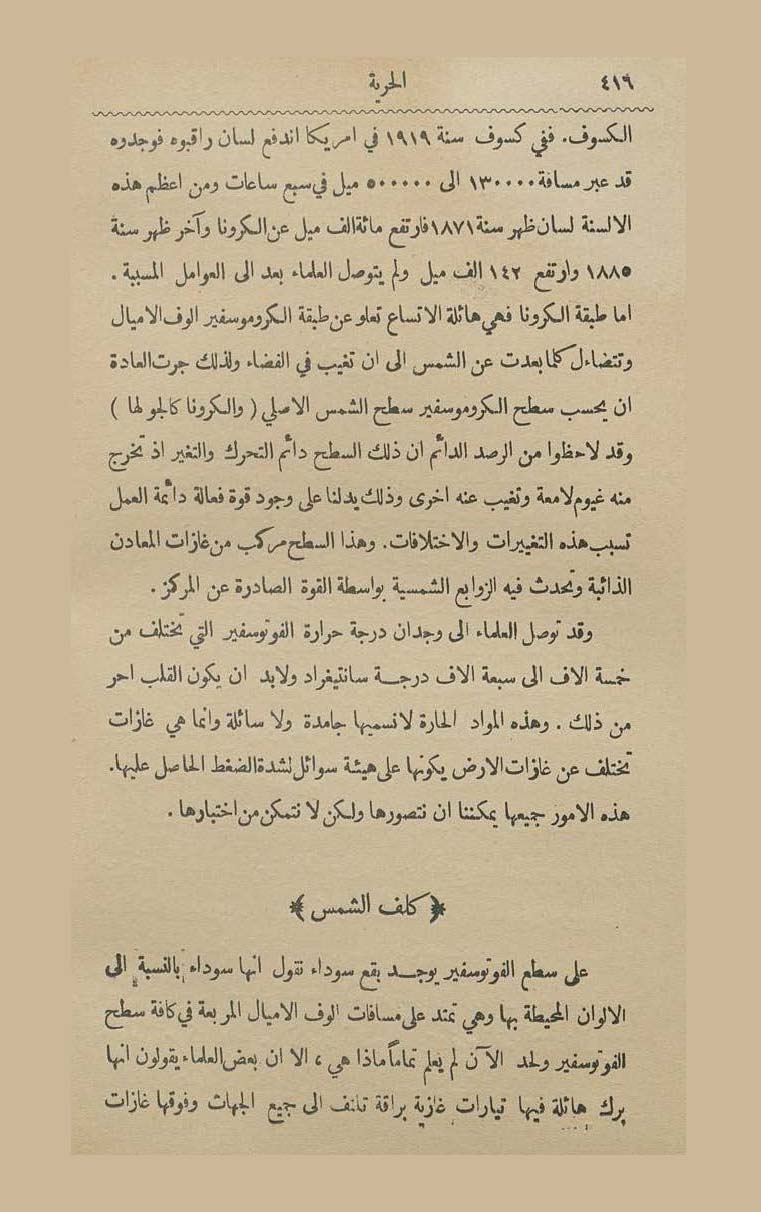 ٤١٦
الحرية
الكسوف. ففي كسوف سنة ١٩١٩ في امريكا اندفع لسان راقبوه فوجدوه
قد عبر مسافة ١٣٠٠٠٠ الى ٥٠٠٠٠٠ ميل في سبع ساعات ومن اعظم هذه
الالسنة لسان ظهر سنة ١٨٧١ فارتفع مائة الف ميل عن الكرونا وآخر ظهر سنة
١٨٨٥ وارتفع ١٤٢ الف ميل ولم يتوصل العلماء بعد الى العوامل المسببة .
اما طبقة الكرونا فهي هائلة الاتساع تعلو عن طبقة الكروموسفير الوف الاميال
وتتضاءل كلما بعدت عن الشمس الى ان تغيب في الفضاء ولذلك جرت العادة
ان يحسب سطح الكروموسفير سطح الشمس الاصلي ( والكرونا كالجو لها )
وقد لاحظوا من الرصد الدائم ان ذلك السطح دائم التحرك والتغير اذ تخرج
منه غيوم لامعة وتغيب عنه اخرى وذلك يدلنا على وجود قوة فعالة دائمة العمل
تسبب هذه التغييرات والاختلافات. وهذا السطح مركب من غازات المعادن
الذائبة وتحدث فيه الزوابع الشمسية بواسطة القوة الصادرة عن المركز .
وقد توصل العلماء الى وجدان درجة حرارة الفوتوسفير التي تختلف من
خمسة الاف الى سبعة الاف درجة سانتيغراد ولابد ان يكون القلب احر
من ذلك . وهذه المواد الحارة لانسميها جامدة ولا سائلة وانما هي غازات
تختلف عن غازات الارض بكونها على هيئة سوائل لشدة الضغط الحاصل عليها.
هذه الامور جميعها يمكننا ان نتصورها ولكن لا نتمكن من اختبارها .
﴿ كلف الشمس ﴾
على سطع الفوتوسفير يوجد بقع سوداء نقول انها سوداء بالنسبة الى
الالوان المحيطة بها وهي تمتد على مسافات الوف الاميال المربعة في كافة سطح
الفوتوسفير ولحد الآن لم يعلم تماماً ماذا هي ، الا ان بعض العلماء يقولون انها
برك هائلة فيها تيارات غازية براقة تانف الى جميع الجهات وفوقها غازات